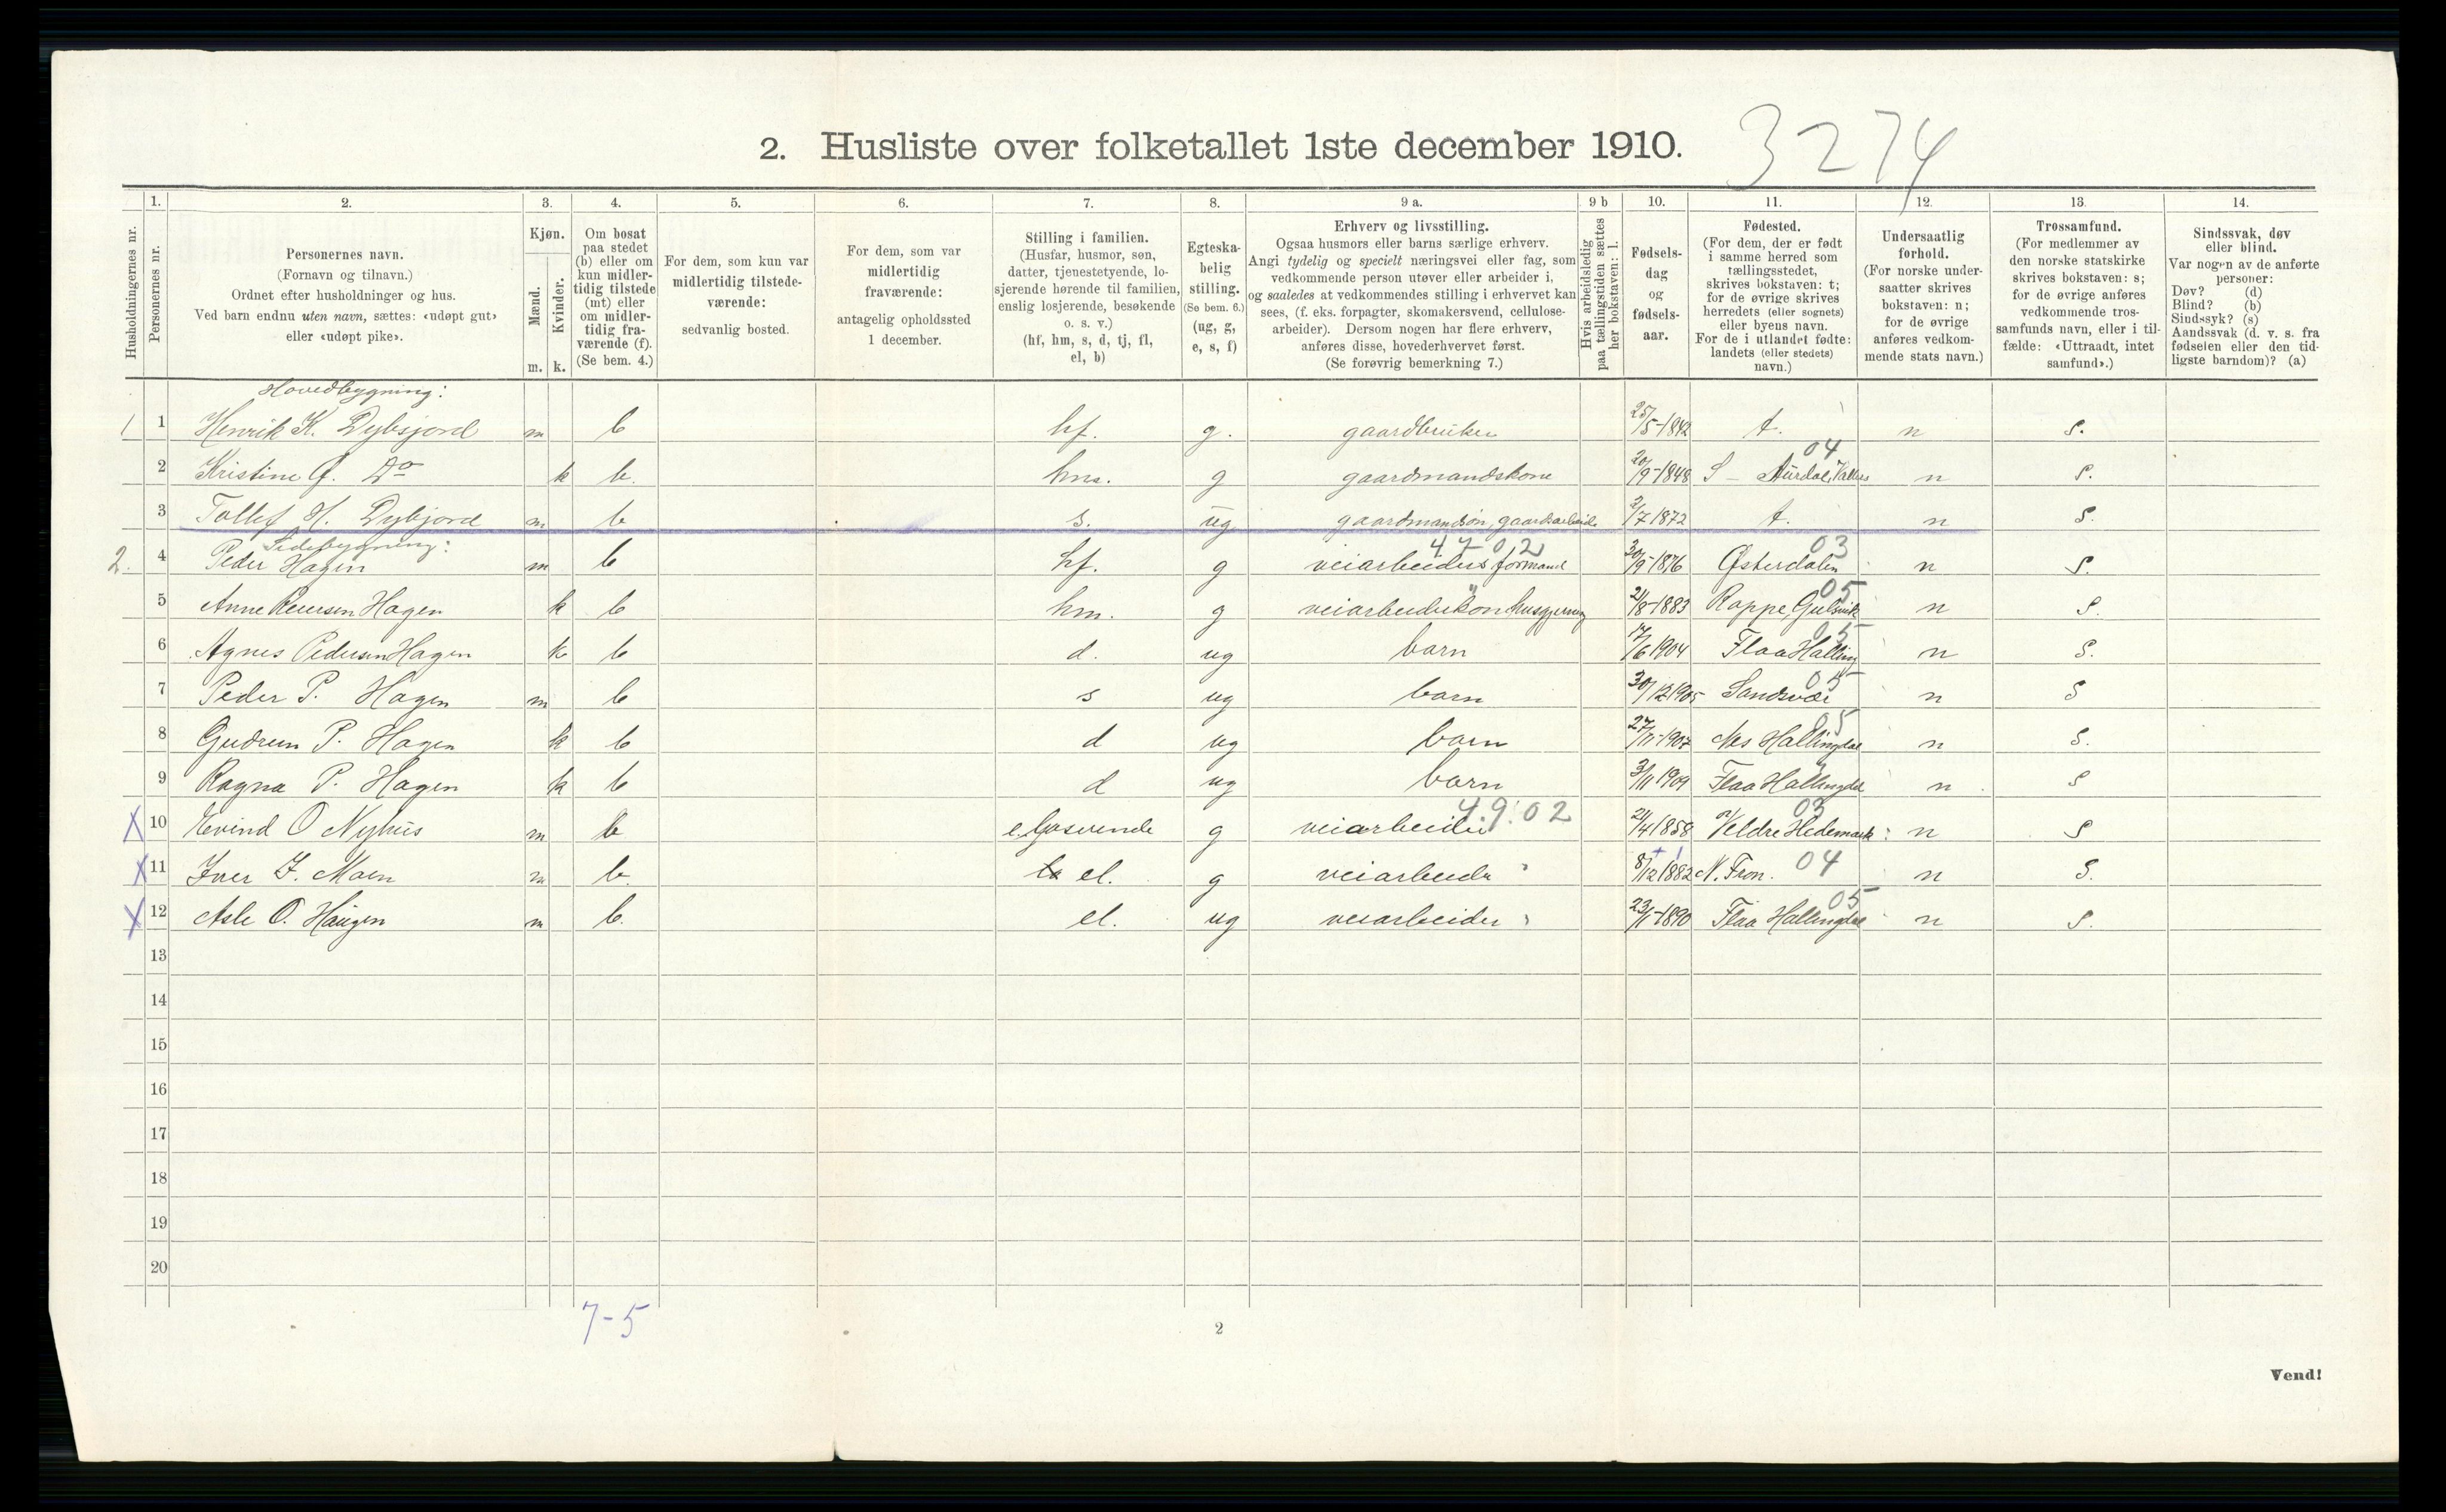 2. Husliste over folketallet 1ste december 1910.
3274
Husholdningernes nr.
1. Personernes nr.
2. Personernes navn. (Fornavn og tilnavn.) Ordnet efter husholdninger og hus. Ved barn endnu uten navn, sættes: «udøpt gut» eller «udøpt pike».
3. Kjøn. Mænd. m. Kvinder. k.
4. Om bosat paa stedet (b) eller om kun midlertidig tilstede (mt) eller om midlertidig fraværende (f). (Se bem. 4.)
5. For dem, som kun var midlertidig tilstedeværende: sedvanlig bosted.
6. For dem, som var midlertidig fraværende: antagelig opholdssted 1 december.
7. Stilling i familien. (Husfar, husmor, søn, datter, tjenestetyende, losjerende hørende til familien, enslig losjerende, besøkende o. s. v.) (hf, hm, s, d, tj, fl, el, b)
8. Egteskabelig stilling. (Se bem. 6.) (ug, g, e, s, f)
9 a. Erhverv og livsstilling. Ogsaa husmors eller barns særlige erhverv. Angi tydelig og specielt næringsvei eller fag, som vedkommende person utøver eller arbeider i, og saaledes at vedkommendes stilling i erhvervet kan sees, (f. eks. forpagter, skomakersvend, cellulosearbeider). Dersom nogen har flere erhverv, anføres disse, hovederhvervet først. (Se forøvrig bemerkning 7.)
9 b Hvis arbeidsledig paa tællingstiden sættes her bokstaven: l.
10. Fødselsdag og fødselsaar.
11. Fødested. (For dem, der er født i samme herred som tællingsstedet, skrives bokstaven: t; for de øvrige skrives herredets (eller sognets) eller byens navn. For de i utlandet fødte: landets (eller stedets) navn.)
12. Undersaatlig forhold. (For norske undersaatter skrives bokstaven: n; for de øvrige anføres vedkommende stats navn.)
13. Trossamfund. (For medlemmer av den norske statskirke skrives bokstaven: s; for de øvrige anføres vedkommende trossamfunds navn, eller i tilfælde: «Uttraadt, intet samfund».)
14. Sindssvak, døv eller blind. Var nogen av de anførte personer: Døv? (d) Blind? (b) Sindssyk? (s) Aandssvak (d. v. s. fra fødselen eller den tidligste barndom)? (a)
Hovedbygning:
1 1 Henrik K. Dybsjord m b hf. g. gaardbruker 25/5-1842 t. n s.
2 Kristine G. Do k b. hm. g gaardmandskone 20/9-1848 S-Aurdal, Valdres 04 n s.
3 Tollef H. Dybsjord m b s. ug gaardmandsøn, gaardsarbeide 2/7 1872 t. n s.
Sidebygning:
2. 4 Peder Hagen m b hf. g veiarbeiders formand 4702 30/9-1876 Østerdalen 03 n s.
5 Anne Hagen k b hm. g husgjerning 21/8-1883 Gulsvik 05 n s.
6 Agnes Pedersen Hagen k b d. ug barn 17/6 1904 Flaa Halling 05 n s.
7 Peder P. Hagen m b s ug barn 30/12 1905 Sandsvær 05 n s
8 Gudrun P. Hagen k b d ug barn 27/11-1907 Nes Hallingdal 05 n s.
9 Ragna P. Hagen k b d ug barn 3/11 1909 Flaa Hallingdal n s
X 10 Eivind O Nyhus m b g veiarbeider 4902 21/4 1858 Veldre Hedemark 03 n s
X 11 Iver I. Moen m b. el. g veiarbeider 8/12 1882 N. Fron. 04 n s.
X 12 Asle O. Haugen m b. el. ug veiarbeider 23/1-1890 Flaa Hallingdal 05 n s.
13
14
15
16
17
18
19
20
7-5
2
Vend!